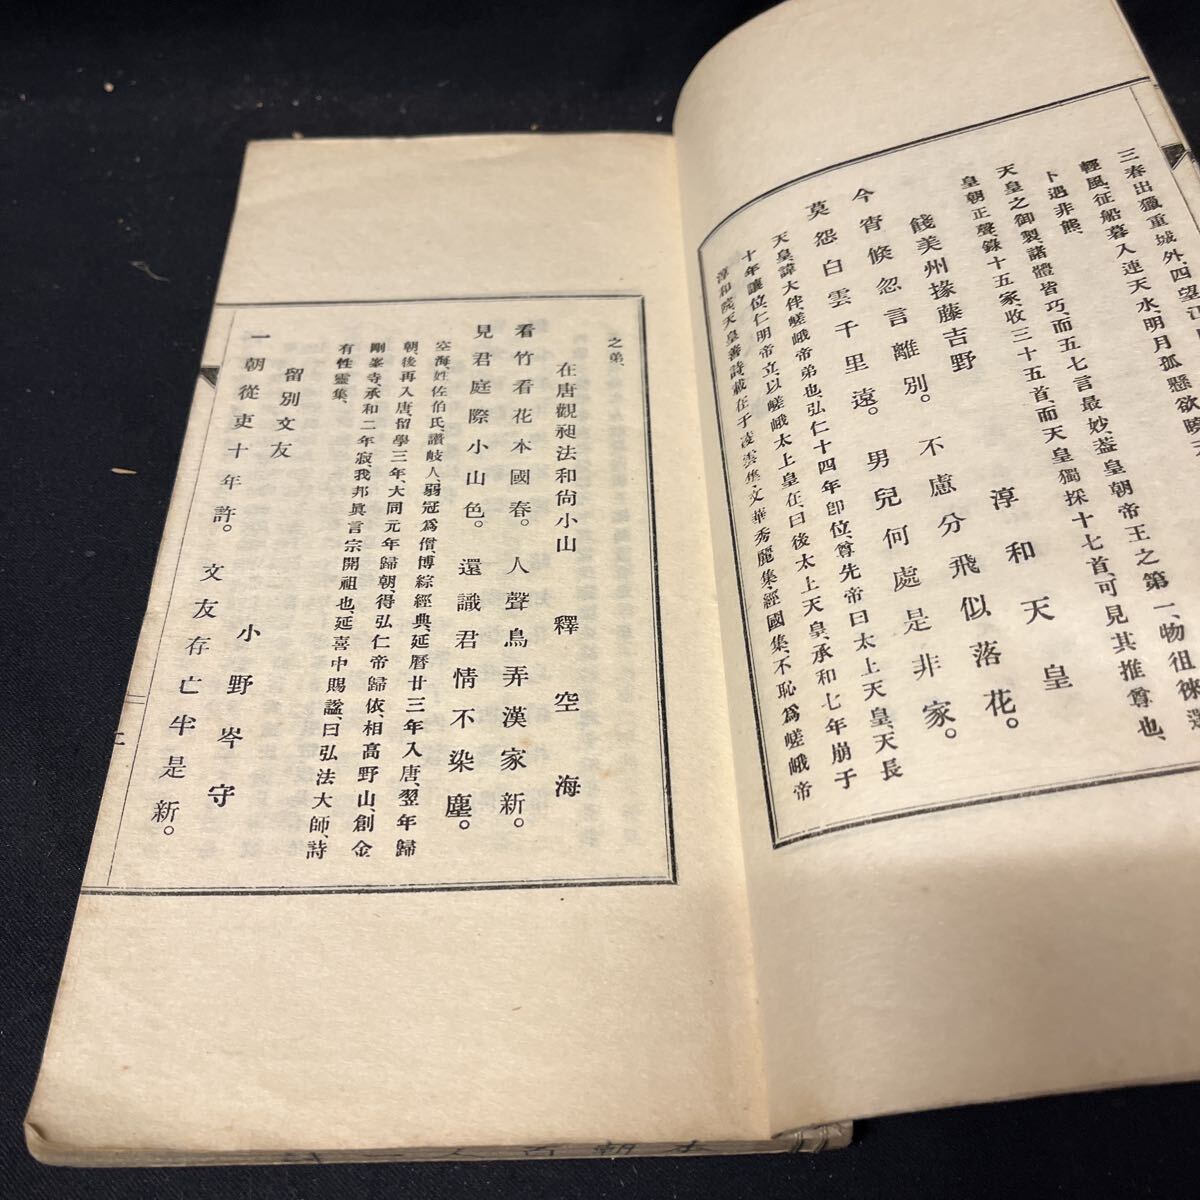 三春出獵重城外、四望江
輕風、征船暮入連天水、明月孤懸欲曉天
卜遇非熊、
天皇之御製、諸體皆巧、而五七言最妙、葢皇朝帝王之第一、物徂徠選
皇朝正聲、錄十五家、收三十五首、而天皇獨採十七首、可見其推尊也、
餞美州掾藤吉野　淳和天皇
今宵倏忽言離別。不慮分飛似落花。
莫怨白雲千里遠。男兒何處是非家。
天皇、諱大伴、嵯峨帝弟也、弘仁十四年卽位、尊先帝曰太上天皇、天長
十年讓位、仁明帝立、以嵯峨太上皇在、曰後太上天皇、承和七年崩于
淳和院、天皇善詩、載在于凌雲集、文華秀麗集、經國集、不恥爲嵯峨帝
之弟、
在唐觀昶法和尙小山　釋空海
看竹看花本國春。人聲鳥弄漢家新。
見君庭際小山色。還識君情不染塵。
空海、姓佐伯氏、讚岐人、弱冠爲僧、博綜經典、延曆廿三年入唐、翌年歸
朝、後再入唐、留學三年、大同元年歸朝、得弘仁帝歸依、相高野山、創金
剛峯寺、承和二年寂、我邦眞言宗開祖也、延喜中賜謚、曰弘法大師、詩
有性靈集、
留別文友　小野岑守
一朝從吏十年許。文友存亡半是新。
上
本朝百人一詩